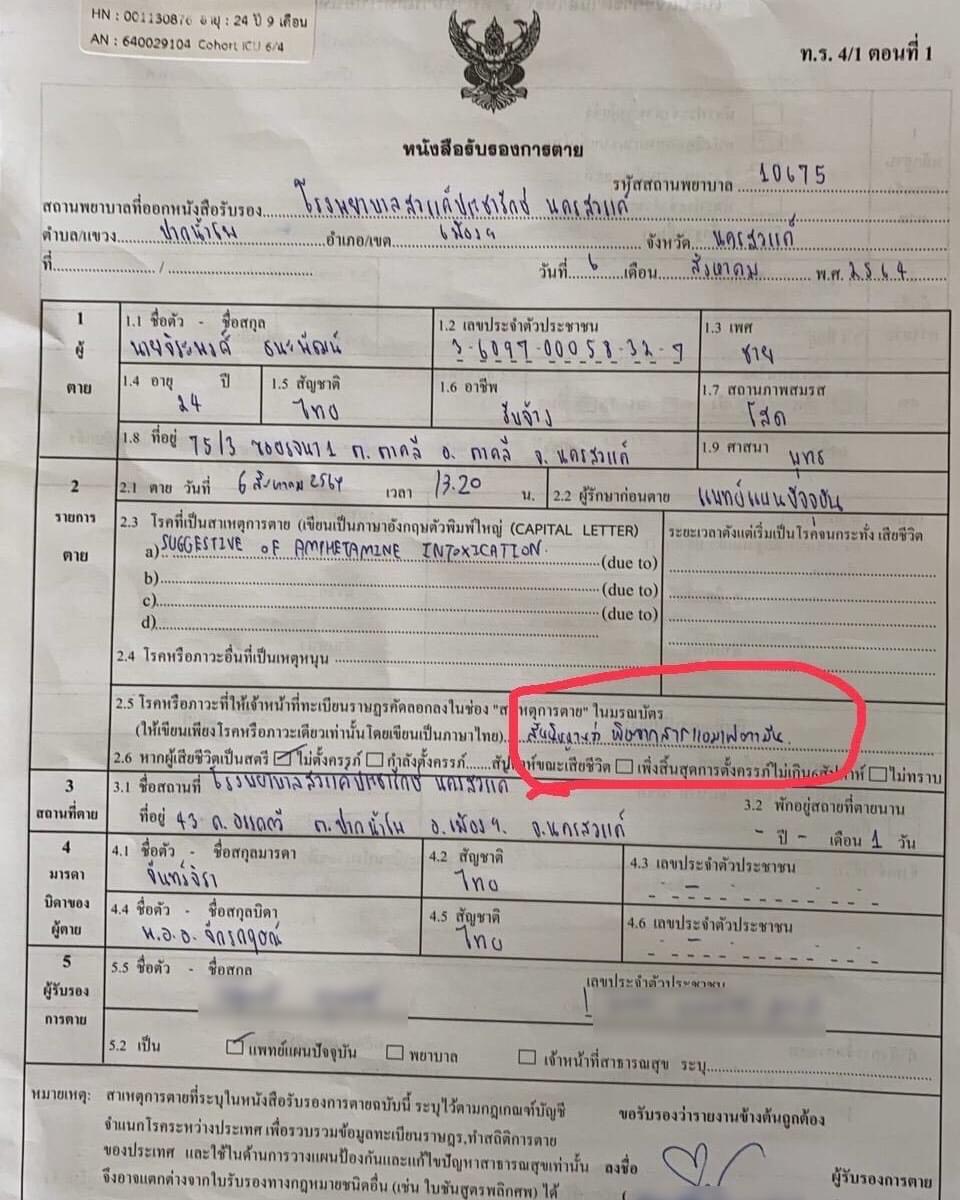 HN : 001130876 อายุ : 24 ปี 9 เดือน
AN : 640029104 Cohort ICU 6/4
ท.ร. 4/1 ตอนที่ 1
หนังสือรับรองการตาย
รหัสสถานพยาบาล 10675
สถานพยาบาลที่ออกหนังสือรับรอง โรงพยาบาลสวรรค์ประชารักษ์ นครสวรรค์
ตำบล/แขวง ปากน้ำโพ อำเภอ/เขต เมืองฯ จังหวัด นครสวรรค์
ที่ / วันที่ 6 เดือน สิงหาคม พ.ศ. 2564
1 ผู้ตาย
1.1 ชื่อตัว - ชื่อสกุล 1.2 เลขประจำตัวประชาชน 1.3 เพศ
นายจิระพงศ์ ธนะพัฒน์ 3-6097-00058-32-7 ชาย
1.4 อายุ ปี 1.5 สัญชาติ 1.6 อาชีพ 1.7 สถานภาพสมรส
24 ไทย รับจ้าง โสด
1.8 ที่อยู่ 75/3 ต. ตาคลี อ. ตาคลี จ. นครสวรรค์ 1.9 ศาสนา พุทธ
2 รายการตาย
2.1 ตาย วันที่ 6 สิงหาคม 2564 เวลา 13.20 น. 2.2 ผู้รักษาก่อนตาย แพทย์แผนปัจจุบัน
2.3 โรคที่เป็นสาเหตุการตาย (เขียนเป็นภาษาอังกฤษตัวพิมพ์ใหญ่ (CAPITAL LETTER) ระยะเวลาตั้งแต่เริ่มเป็นโรคจนกระทั่ง เสียชีวิต
a) SUGGESTIVE OF AMPHETAMINE INTOXICATION. (due to)
b) (due to)
c) (due to)
d)
2.4 โรคหรือภาวะอื่นที่เป็นเหตุหนุน
2.5 โรคหรือภาวะที่ให้เจ้าหน้าที่ทะเบียนราษฎรคัดลอกลงในช่อง "สาเหตุการตาย" ในมรณบัตร
(ให้เขียนเพียงโรคหรือภาวะเดียวเท่านั้นโดยเขียนเป็นภาษาไทย) สันนิษฐานว่า พิษจากสารแอมเฟตามีน.
2.6 หากผู้เสียชีวิตเป็นสตรี ไม่ตั้งครรภ์ กำลังตั้งครรภ์ สัปดาห์ขณะเสียชีวิต เพิ่งสิ้นสุดการตั้งครรภ์ไม่เกิน 6 สัปดาห์ ไม่ทราบ
3 สถานที่ตาย
3.1 ชื่อสถานที่ โรงพยาบาลสวรรค์ประชารักษ์ นครสวรรค์ 3.2 พักอยู่สถานที่ตายนาน
ที่อยู่ 43 ถ. อรรถกวี ต.ปากน้ำโพ อ.เมืองฯ. จ.นครสวรรค์ - ปี - เดือน 1 วัน
4 มารดา บิดาของ ผู้ตาย
4.1 ชื่อตัว - ชื่อสกุลมารดา 4.2 สัญชาติ 4.3 เลขประจำตัวประชาชน
จันทร์จิรา ไทย
4.4 ชื่อตัว - ชื่อสกุลบิดา 4.5 สัญชาติ 4.6 เลขประจำตัวประชาชน
พ.อ.อ. จักรกฤษณ์ ไทย
5 ผู้รับรอง การตาย
5.5 ชื่อตัว - ชื่อสกุล เลขประจำตัวประชาชน
5.2 เป็น แพทย์แผนปัจจุบัน พยาบาล เจ้าหน้าที่สาธารณสุข ระบุ
หมายเหตุ: สาเหตุการตายที่ระบุในหนังสือรับรองการตายฉบับนี้ ระบุไว้ตามกฎเกณฑ์บัญชี ขอรับรองว่ารายงานข้างต้นถูกต้อง
จำแนกโรคระหว่างประเทศ เพื่อรวบรวมข้อมูลทะเบียนราษฎร,ทำสถิติการตาย
ของประเทศ และใช้ในด้านการวางแผนป้องกันและแก้ไขปัญหาสาธารณสุขเท่านั้น ลงชื่อ ผู้รับรองการตาย
จึงอาจแตกต่างจากใบรับรองทางกฎหมายชนิดอื่น (เช่น ใบชันสูตรพลิกศพ) ได้ (